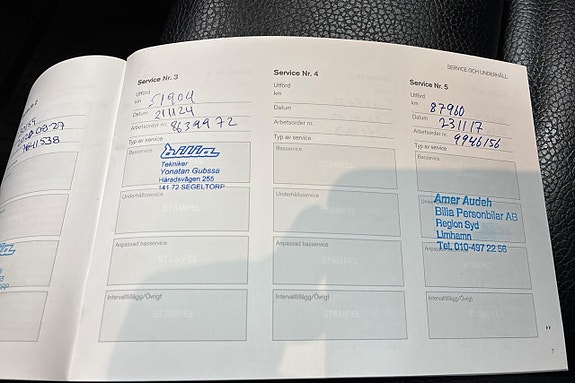 SERVICE OCH UNDERHÅLL
Service Nr. 3
Utförd
km 51904
Datum 211124
Arbetsorder nr. 8639972
Typ av service
Basservice
bilia
Tekniker
Yonatan Gubssa
Häradsvägen 255
141 72 SEGELTORP
Underhållsservice
Anpassad basservice
STÄMPEL
Intervalltillägg/Övrigt
STÄMPEL
Service Nr. 4
Utförd
km
Datum
Arbetsorder nr.
Typ av service
Basservice
Underhållsservice
Anpassad basservice
STÄMPEL
Intervalltillägg/Övrigt
STÄMPEL
Service Nr. 5
Utförd
km 87960
Datum 231117
Arbetsorder nr. 9946156
Typ av service
Basservice
Amer Audeh
Bilia Personbilar AB
Region Syd
Limhamn
Tel. 010-497 22 56
Anpassad basservice
STÄMPEL
Intervalltillägg/Övrigt
STÄMPEL
7